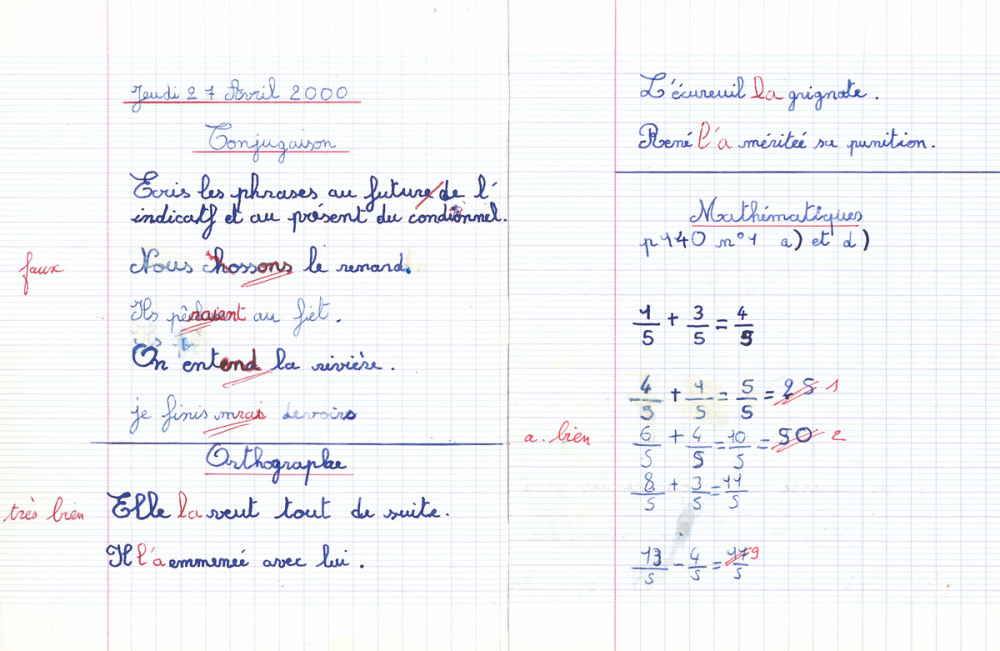 Jeudi 27 Avril 2000
Conjugaison
Ecris les phrases au future de l'
indicatif et au présent du conditionnel.
faux
Nous chossons le renard.
Ils pêchraient au filet.
On entend la rivière.
je finis mrai devoirs
Orthographe
très bien
Elle la veut tout de suite.
Il l'a emmeneé avec lui.
L'écureuil la grignote.
René l'a méritéé sa punition.
Mathématiques
p 140 n°1 a) et d)
1/5 + 3/5 = 4/5
4/5 + 1/5 = 5/5 = 25 1
a. bien
6/5 + 4/5 = 10/5 = 50 2
8/5 + 3/5 = 11/5
13/5 - 4/5 = 17/5 9